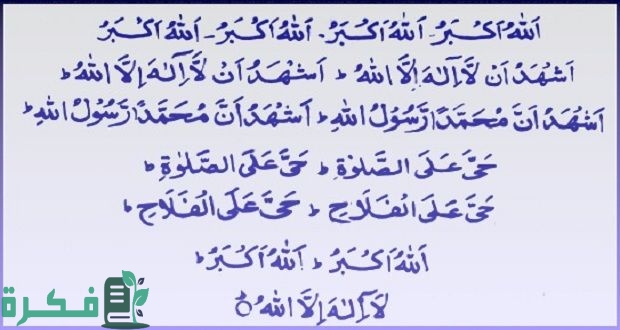 اَللّٰهُ اَكْبَرُ۔ اَللّٰهُ اَكْبَرُ۔ اَللّٰهُ اَكْبَرُ۔ اَللّٰهُ اَكْبَرُ
اَشْهَدُ اَنْ لَّآ اِلٰهَ اِلَّا اللّٰهُ ط اَشْهَدُ اَنْ لَّآ اِلٰهَ اِلَّا اللّٰهُ ط
اَشْهَدُ اَنَّ مُحَمَّدًا رَّسُوْلُ اللّٰهِ ط اَشْهَدُ اَنَّ مُحَمَّدًا رَّسُوْلُ اللّٰهِ ط
حَیَّ عَلَی الصَّلٰوةِ ط حَیَّ عَلَی الصَّلٰوةِ ط
حَیَّ عَلَی الْفَلَاحِ ط حَیَّ عَلَی الْفَلَاحِ ط
اَللّٰهُ اَكْبَرُ ط اَللّٰهُ اَكْبَرُ ط
لَآ اِلٰهَ اِلَّا اللّٰهُ ط
فكرة